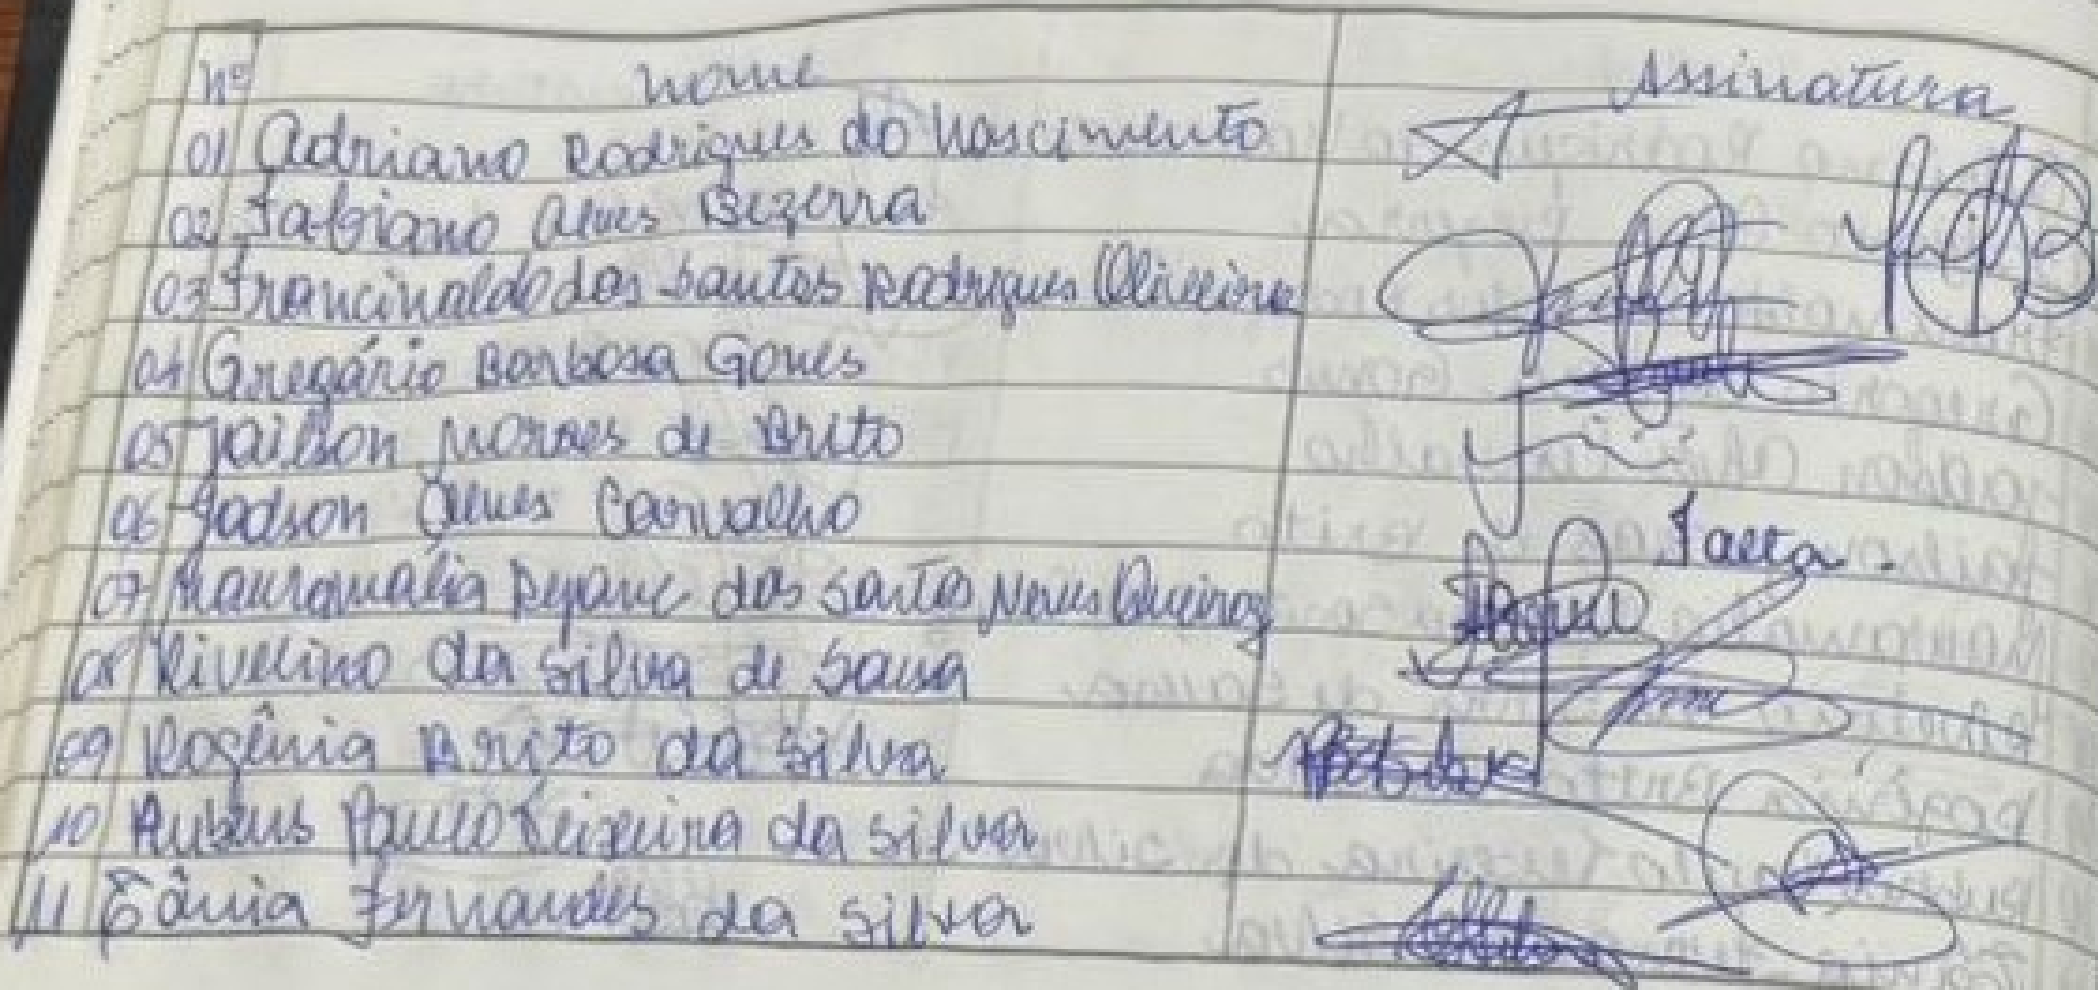 Nº Nome Assinatura
01 Adriano Rodrigues do Nascimento
02 Fabiano Alves Bezerra
03 Francinaldo dos Santos Rodrigues Oliveira
04 Gregário Barbosa Gomes
05 Jailson Moraes de Brito
06 Jadson Alves Carvalho Falta.
07 Mauramália Rejane dos Santos Neves Queiroz
08 Rivelino da Silva de Sousa
09 Rogênia Brito da Silva
10 Rubens Paulo Teixeira da Silva
11 Tânia Fernandes da Silva